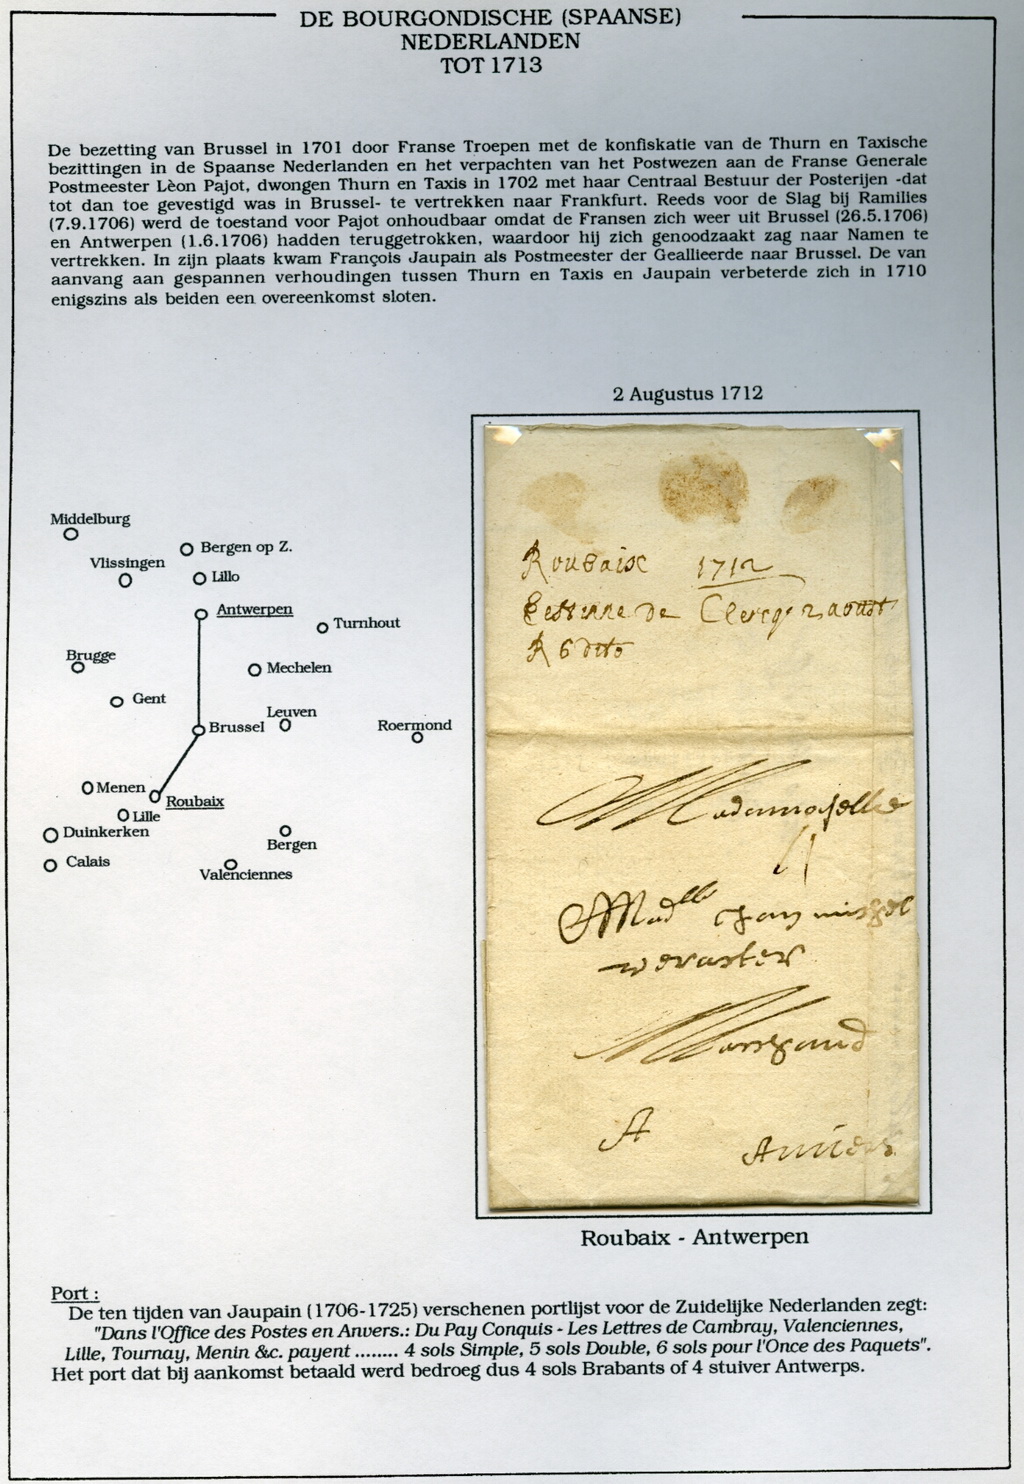 DE BOURGONDISCHE (SPAANSE)
NEDERLANDEN
TOT 1713
De bezetting van Brussel in 1701 door Franse Troepen met de konfiskatie van de Thurn en Taxische
bezittingen in de Spaanse Nederlanden en het verpachten van het Postwezen aan de Franse Generale
Postmeester Lèon Pajot, dwongen Thurn en Taxis in 1702 met haar Centraal Bestuur der Posterijen -dat
tot dan toe gevestigd was in Brussel- te vertrekken naar Frankfurt. Reeds voor de Slag bij Ramilies
(7.9.1706) werd de toestand voor Pajot onhoudbaar omdat de Fransen zich weer uit Brussel (26.5.1706)
en Antwerpen (1.6.1706) hadden teruggetrokken, waardoor hij zich genoodzaakt zag naar Namen te
vertrekken. In zijn plaats kwam François Jaupain als Postmeester der Geallieerde naar Brussel. De van
aanvang aan gespannen verhoudingen tussen Thurn en Taxis en Jaupain verbeterde zich in 1710
enigszins als beiden een overeenkomst sloten.
2 Augustus 1712
Middelburg
Bergen op Z.
Vlissingen
Lillo
Antwerpen
Turnhout
Brugge
Mechelen
Gent
Leuven
Brussel
Roermond
Menen
Roubaix
Lille
Duinkerken
Bergen
Calais
Valenciennes
Roubaix 1712
de Clercq 2 aoust
R 6 dito
Mademoiselle
Madlle
A Anvers
Roubaix - Antwerpen
Port :
De ten tijden van Jaupain (1706-1725) verschenen portlijst voor de Zuidelijke Nederlanden zegt:
"Dans l'Office des Postes en Anvers.: Du Pay Conquis - Les Lettres de Cambray, Valenciennes,
Lille, Tournay, Menin &c. payent ........ 4 sols Simple, 5 sols Double, 6 sols pour l'Once des Paquets".
Het port dat bij aankomst betaald werd bedroeg dus 4 sols Brabants of 4 stuiver Antwerps.